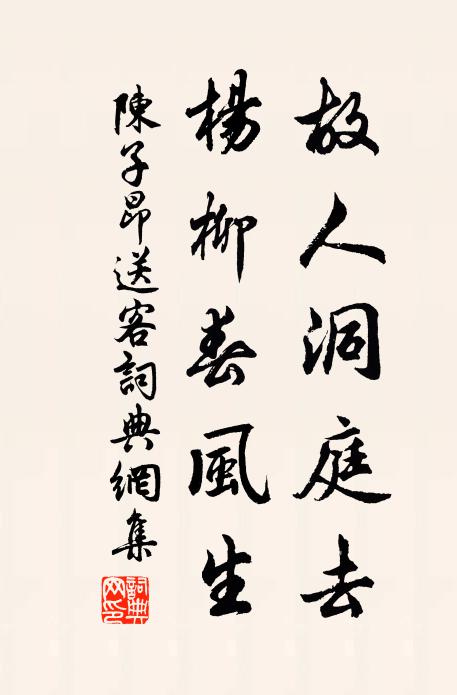 故人洞庭去
楊柳春風生
陳子昂送客詞典網集
詞典
网印